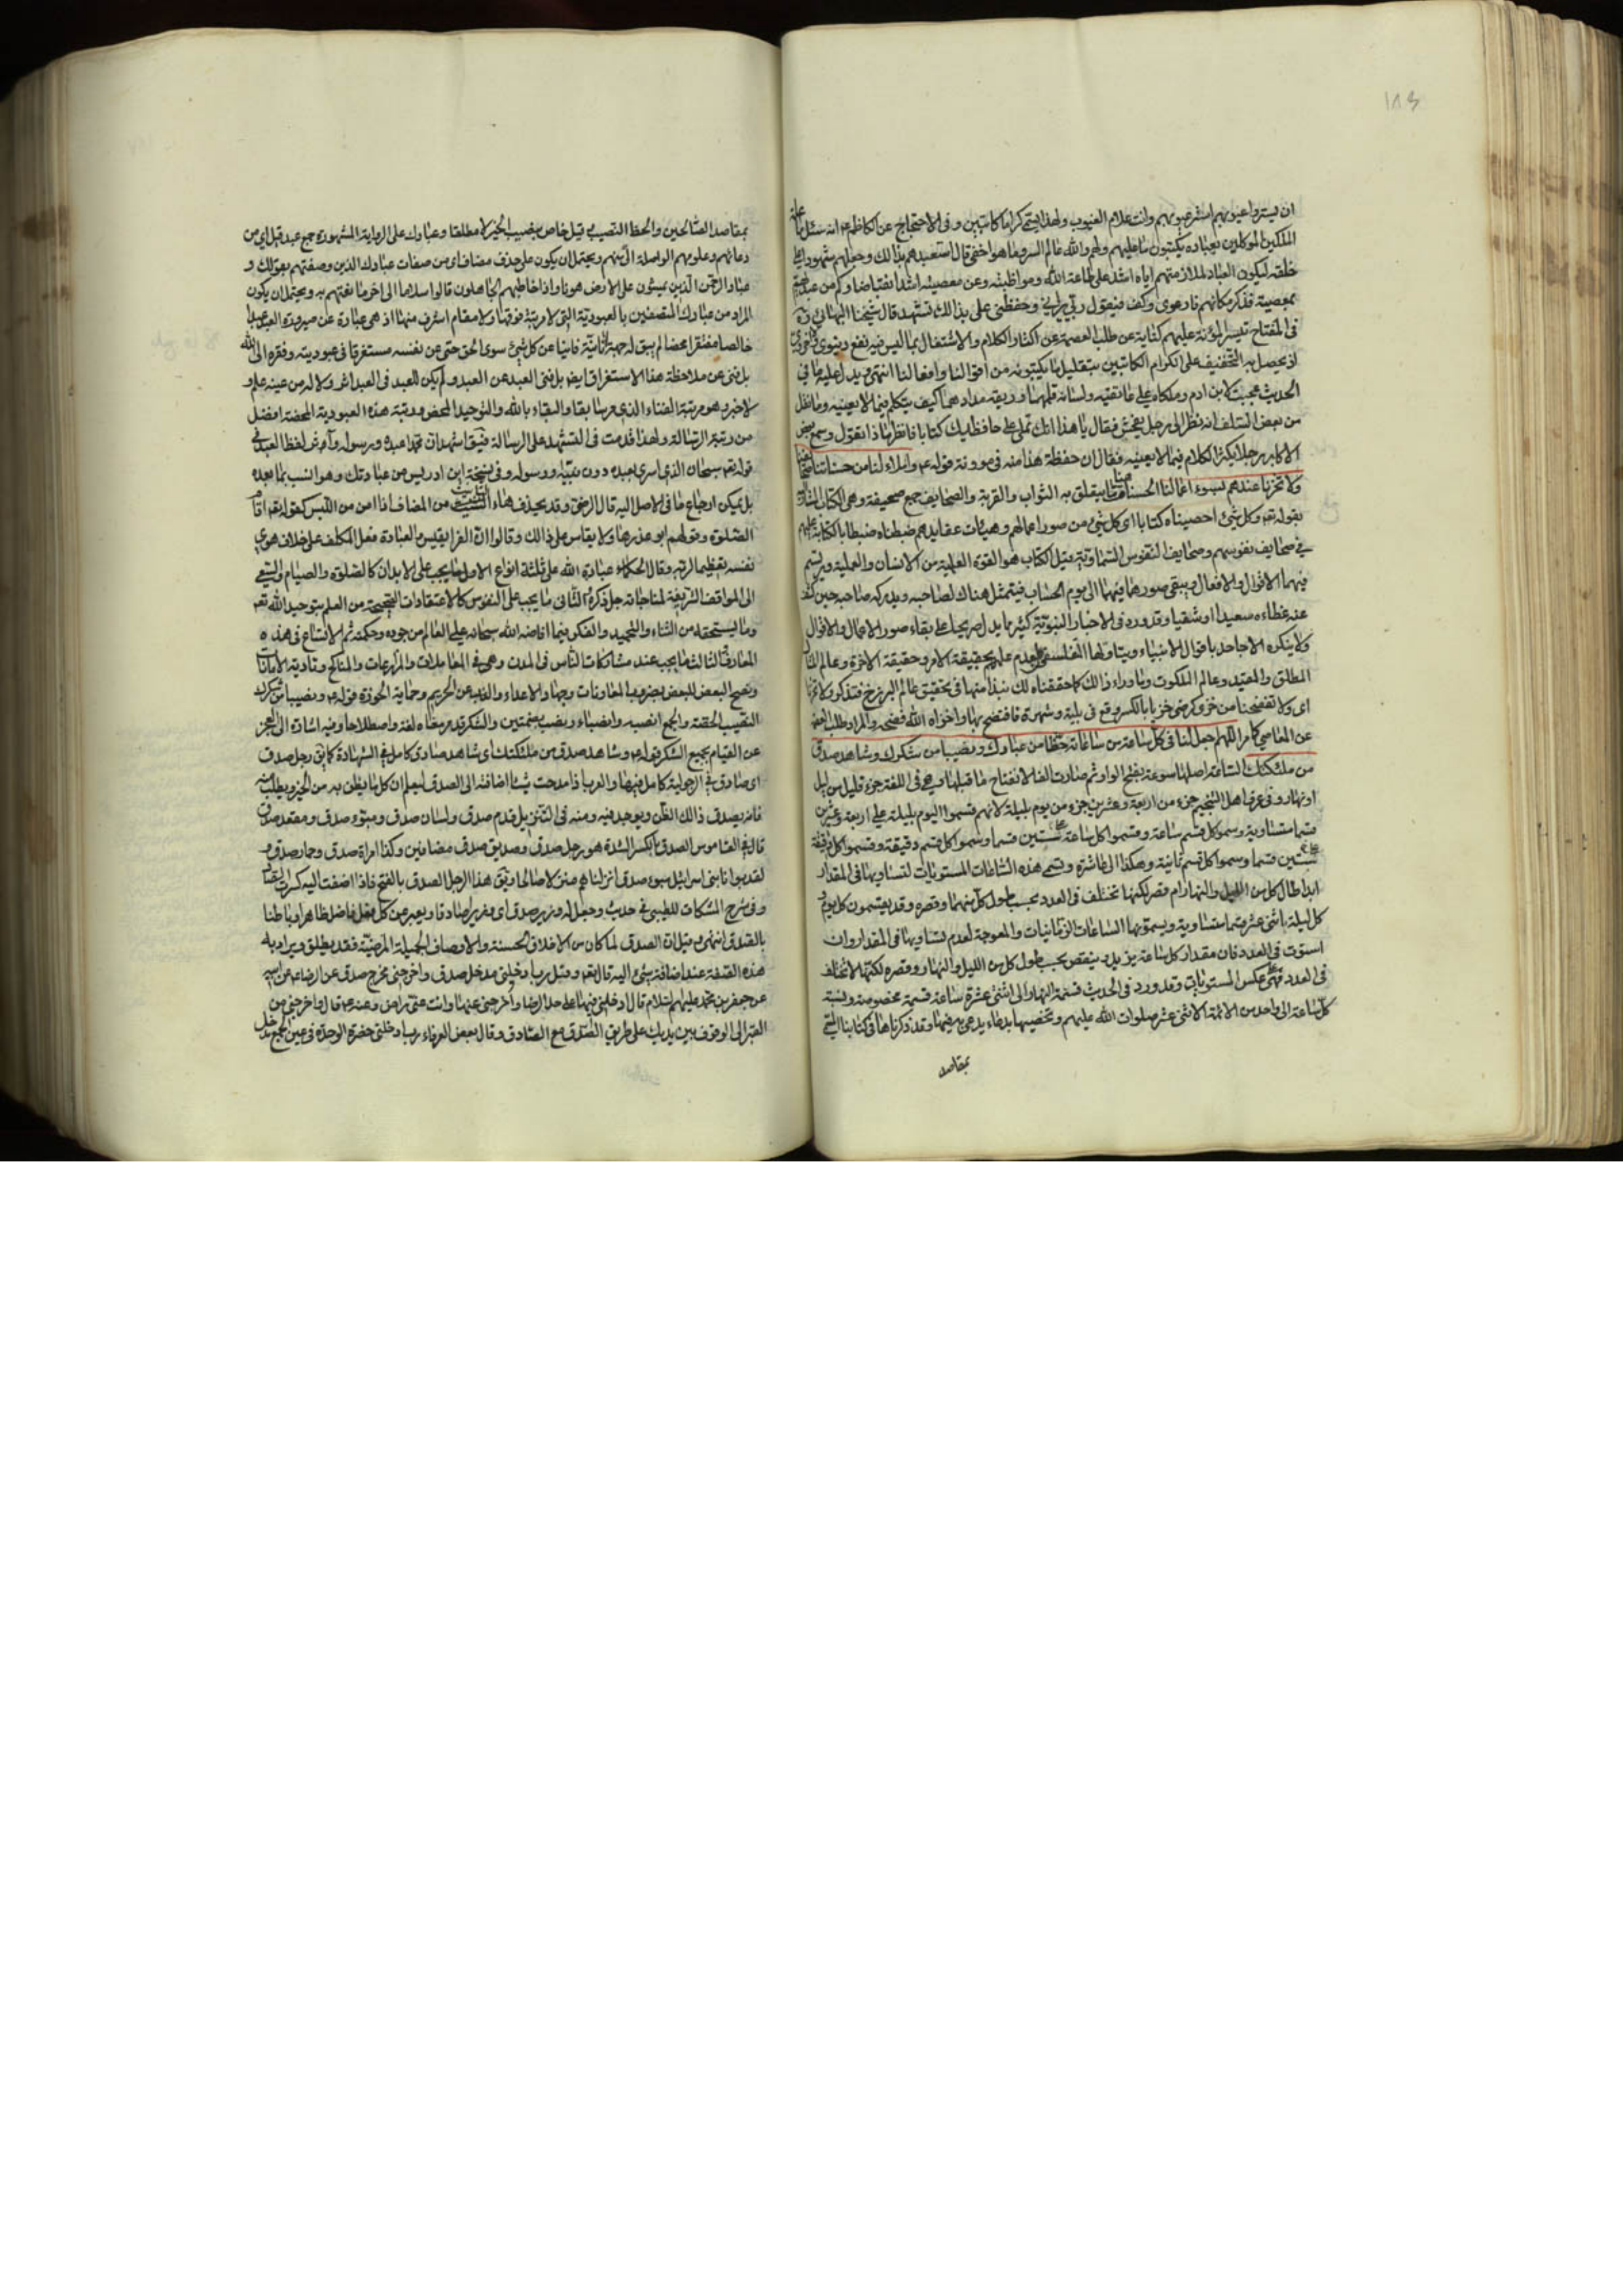 ١٨٣
ان يستروا عيوبهم استر عيوبهم وانت علام الغيوب ولهذا يسمى كراما كاتبين وفى الاحتجاج عن الكاظم ع انه سئل ما علة
الملكين الموكلين بعباده يكتبون ما عليهم ولهم والله عالم السر وما هو اخفى قال استعبدهم بذلك وجعلهم شهودا على
خلقه ليكون العباد لملازمتهم اياه اشد على طاعة الله ومواظبة وعن معصيته اشد انقباضا وكم من عبد يهم
بمعصية فذكر مكانهم فارعوى وكف فيقول ربى يرانى وحفظتى على بذالك تشهد قال شيخنا البهائى ره
فى المفتاح تيسير المؤنة عليهم كناية عن طلب العصمة عن اكثار الكلام والاشتغال بما ليس فيه نفع دنيوى ولا اخروى
اذ يحصل به التخفيف على الكرام الكاتبين بتقليل ما يكتبونه من اقوالنا وافعالنا انتهى ويدل عليه ما فى
الحديث عجبت لابن ادم وملكاه على عاتقيه ولسانه قلمهما وريقه مدادهما كيف يتكلم فيما لا يعنيه وما نقل
من بعض السلف انه نظر الى رجل يفحش فقال يا هذا انك تملى على حافظيك كتابا فانظر ماذا تقول وسمع بعض
الاكابر رجلا يكثر الكلام فيما لا يعنيه فقال ان حفظة هذا منه فى موونة قوله ع واملاء لنا من حسناتنا صحايفنا
ولا تخزنا عندهم بسوء اعمالنا الحسنات هنا ما يتعلق به الثواب والقربة والصحايف جمع صحيفة وهى الكتاب المشار اليه
بقوله تعه وكل شئ احصيناه كتابا اى كل شئ من صور اعمالهم وهيئات عقايدهم ضبطناه ضبطا بالكتابة عليهم
فى صحايف نفوسهم وصحايف النفوس السماوية وقيل الكتاب هو القوة العلمية من الانسان والعملية ويرتسم
فيهما الاقوال والافعال ويبقى صورهما فيهما الى يوم الحساب فيتمثل هناك لصاحبه ويدركه صاحبه حين كشف
عنه غطاءه سعيدا او شقيا وقد ورد فى الاخبار النبوية كثير مما يدل صريحا على بقاء صور الاعمال والاقوال
ولا ينكره الا جاحد باقوال الانبياء ويتاولها المتفلسف لعدم علمه بحقيقة الامر وحقيقة الاخرة وعالم المثال
المطلق والمقيد وعالم الملكوت وما وراء ذالك كما حققناه لك نبذا منها فى تحقيق عالم البرزخ فتذكر ولا تخزنا
اى ولا تفضحنا من خزى كرضى خزيا بالكسر وقع فى بلية وشهرة فافتضح بها واخزاه الله فضحه والمراد طلب العصمة
عن المعاصى كما مر اللهم اجعل لنا فى كل ساعة من ساعاته حظا من عبادك ونصيبا من شكرك وشاهد صدق
من ملئكتك الساعة اصلها سوعة بفتح الواو ثم صارت الفا لانفتاح ما قبلها وهى فى اللغة جزء قليل من ليل
او نهار وفى عرف اهل التنجيم جزء من اربعة وعشرين جزء من يوم بليلة لانهم قسموا اليوم بليلته على اربعة وعشرين
قسما متساوية وسموا كل قسم ساعة وقسموا كل ساعة على ستين قسما وسموا كل قسم دقيقة وقسموا كل دقيقة
على ستين قسما وسموا كل قسم ثانية وهكذا الى عاشرة وتسمى هذه الساعات المستويات لتساويها فى المقدار
ابدا طال كل من الليل والنهار ام قصر لكنها تختلف فى العدد بحسب طول كل منهما وقصره وقد يقسمون كل يوم و
كل ليلة باثنى عشر قسما متساوية ويسمونها الساعات الزمانيات والمعوجة لعدم تساويها فى المقدار وان
استوت فى العدد فان مقدار كل ساعة يزيد وينقص بحسب طول كل من الليل والنهار وقصره لكنها لا تختلف
فى العدد فهى عكس المستويات وقد ورد فى الحديث قسمة النهار الى اثنى عشرة ساعة قسمة مخصوصة ونسبة
كل ساعة الى واحد من الائمة الاثنى عشر صلوات الله عليهم وتخصيصها بدعاء يدعى به فيها وقد ذكرناها فى كتابنا المسمى
بمقاصد
بمقاصد الصالحين والحظ النصيب قيل خاص بنصيب الخير لا مطلقا وعبادك على الرواية المشهورة جمع عبد قيل اى من
دعائهم وعلومهم الواصلة الى منهم ويحتمل ان يكون على حذف مضاف اى من صفات عبادك الذين وصفتهم بقولك و
عباد الرحمن الذين يمشون على الارض هونا واذا خاطبهم الجاهلون قالوا سلاما الى اخر ما نعتهم به ويحتمل ان يكون
المراد من عبادك المتصفين بالعبودية التى لا مرتبة فوقها ولا مقام اشرف منها اذ هى عبارة عن صيرورة العبد عبدا
خالصا مفتقرا محضا لم يبق له جهة انانية فانيا عن كل شئ سوى الحق حتى عن نفسه مستغرقا فى عبوديته وفقره الى الله
بل فنى عن ملاحظة هذا الاستغراق ايض بل فنى العبد عن العبد ولم يكن للعبد فى العبد اثر ولا له من عينه علم و
لا خبر وهو مرتبة الفناء الذى مر بيانه بقا والبقاء بالله والتوحيد المحض ومرتبة هذه العبودية المحضة افضل
من رتبة الرسالة ولهذا قدمت فى التشهد على الرسالة فيق اشهد ان محمدا عبده ورسوله واثر لفظ العبد فى
قوله تعه سبحان الذى اسرى بعبده دون نبيه ورسوله وفى نسخة ابن ادريس من عبادتك وهو انسب بما بعده
بل يمكن ارجاع ما فى الاصل اليه قال الرضى وقد يحذف هاء التانيث من المضاف اذا امن من اللبس كقوله تعه اقام
الصلوة وقولهم ابو عذرها ولا يقاس على ذالك وقالوا ان الفرا يقيس والعبادة فعل المكلف على خلاف هوى
نفسه تعظيما لربه وقال الحكماء عبادة الله على ثلثة انواع الاول ما يجب على الابدان كالصلوة والصيام والسعى
الى المواقف الشريفة لمناجاته جل ذكره الثانى ما يجب على النفوس كالاعتقادات الصحيحة من العلم بتوحيد الله تعه
وما يستحقه من الثناء والتمجيد والفكر فيما افاضه الله سبحانه على العالم من جوده وحكمته ثم الاتساع فى هذه
المعارف الثالث ما يجب عند مشاركات الناس فى المدن وهى فى المعاملات والمزارعات والمناكح وتادية الامانات
ونصح البعض للبعض بضروب المعاونات وجهاد الاعداء والذب عن الحريم وحماية الحوزة قوله ع ونصيبا من شكرك
النصيب الحصة والجمع انصبة وانصباء ونصب بضمتين والشكر قد مر معناه لغة واصطلاحا وفيه اشارة الى العجز
عن القيام بجميع الشكر قوله ع وشاهد صدق من ملئكتك اى شاهد صادق كامل فى الشهادة كما يق رجل صدق
اى صادق فى الرجولية كامل فيها والعرب اذا مدحت شيئا اضافته الى الصدق ليعلم ان كل ما يظن به من الخير ويطلب منه
فانه يصدق ذالك الظن ويوجد فيه ومنه فى التنزيل قدم صدق ولسان صدق ومبوء صدق ومقعد صدق
قال فى القاموس الصدق بالكسر الشدة هو رجل صدق وصديق صدق مضافين وكذا امراة صدق وحمار صدق و
لقد بوانا بنى اسرائيل مبوء صدق انزلناهم منزلا صالحا ويق هذا الرجل الصدق بالفتح فاذا اضفت اليه كسرت الصاد
وفى شرح المشكات للطيبى فى حديث وجعل له وزير صدق اى وزيرا صادقا ويعبر عن كل فعل فاضل ظاهرا وباطنا
بالصدق انتهى وقيل ان الصدق لما كان من الاخلاق الحسنة والاوصاف الجميلة المرضية فقد يطلق ويراد به
هذه الصفة عند اضافة شئ اليه قال تعه وقل رب ادخلنى مدخل صدق واخرجنى مخرج صدق عن الرضا ع عن ابيه
عن جعفر بن محمد عليهم السلام قال ادخلنى فيها على حد الرضا واخرجنى عنها وانت عنى راض وعنه ع قال واخرجنى من
القبر الى الوقوف بين يديك على طريق الصدق مع الصادق وقال بعض العرفاء رب ادخلنى حضرة الوحدة فى عين الجمع مدخل